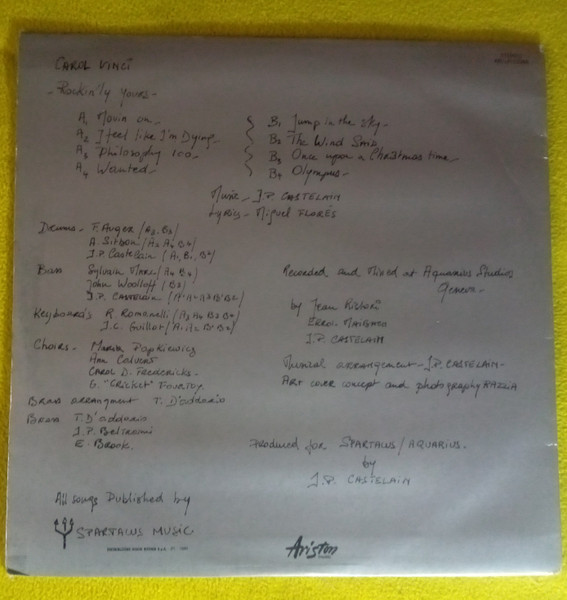 CAROL VINCI
- Rockin'ly yours -
A1 Movin on -
A2 I feel like I'm Dying -
A3 Philosophy 100 -
A4 Wanted -
B1 Jump in the sky -
B2 The Wind Ship
B3 Once upon a Christmas time -
B4 Olympus -
Music - J.P. CASTELAIN
Lyrics - Miguel FLORÈS
Drums - F. Auger / A2, B3 /
A. Sitbon / A3 A4 B4 /
J.P. Castelain / A1, B1, B2 /
Bass Sylvain Marc / A4 B3 /
John Woolloff / B2 /
J.P. CASTELAIN
Keyboards R. Romanelli / A3 A4 B3 B4 /
J.C. Guillot / A1 A2 B1 B2 /
Choirs - Marika Papkiewicz
Ann Calvert
Carol D. Fredericks -
G. "Cricket"
Brass arrangment T. D'addario
Brass T. D'addario
J.P. Beltrami
E. Brook.
Recorded and Mixed at Aquarius Studios
Geneva -
by Jean Ristori
Errol
J.P. CASTELAIN
Musical arrangement - J.P. CASTELAIN -
Art cover concept and photography
Produced for SPARTACUS / AQUARIUS.
by
J.P. CASTELAIN
All songs Published by
SPARTACUS MUSIC
Ariston